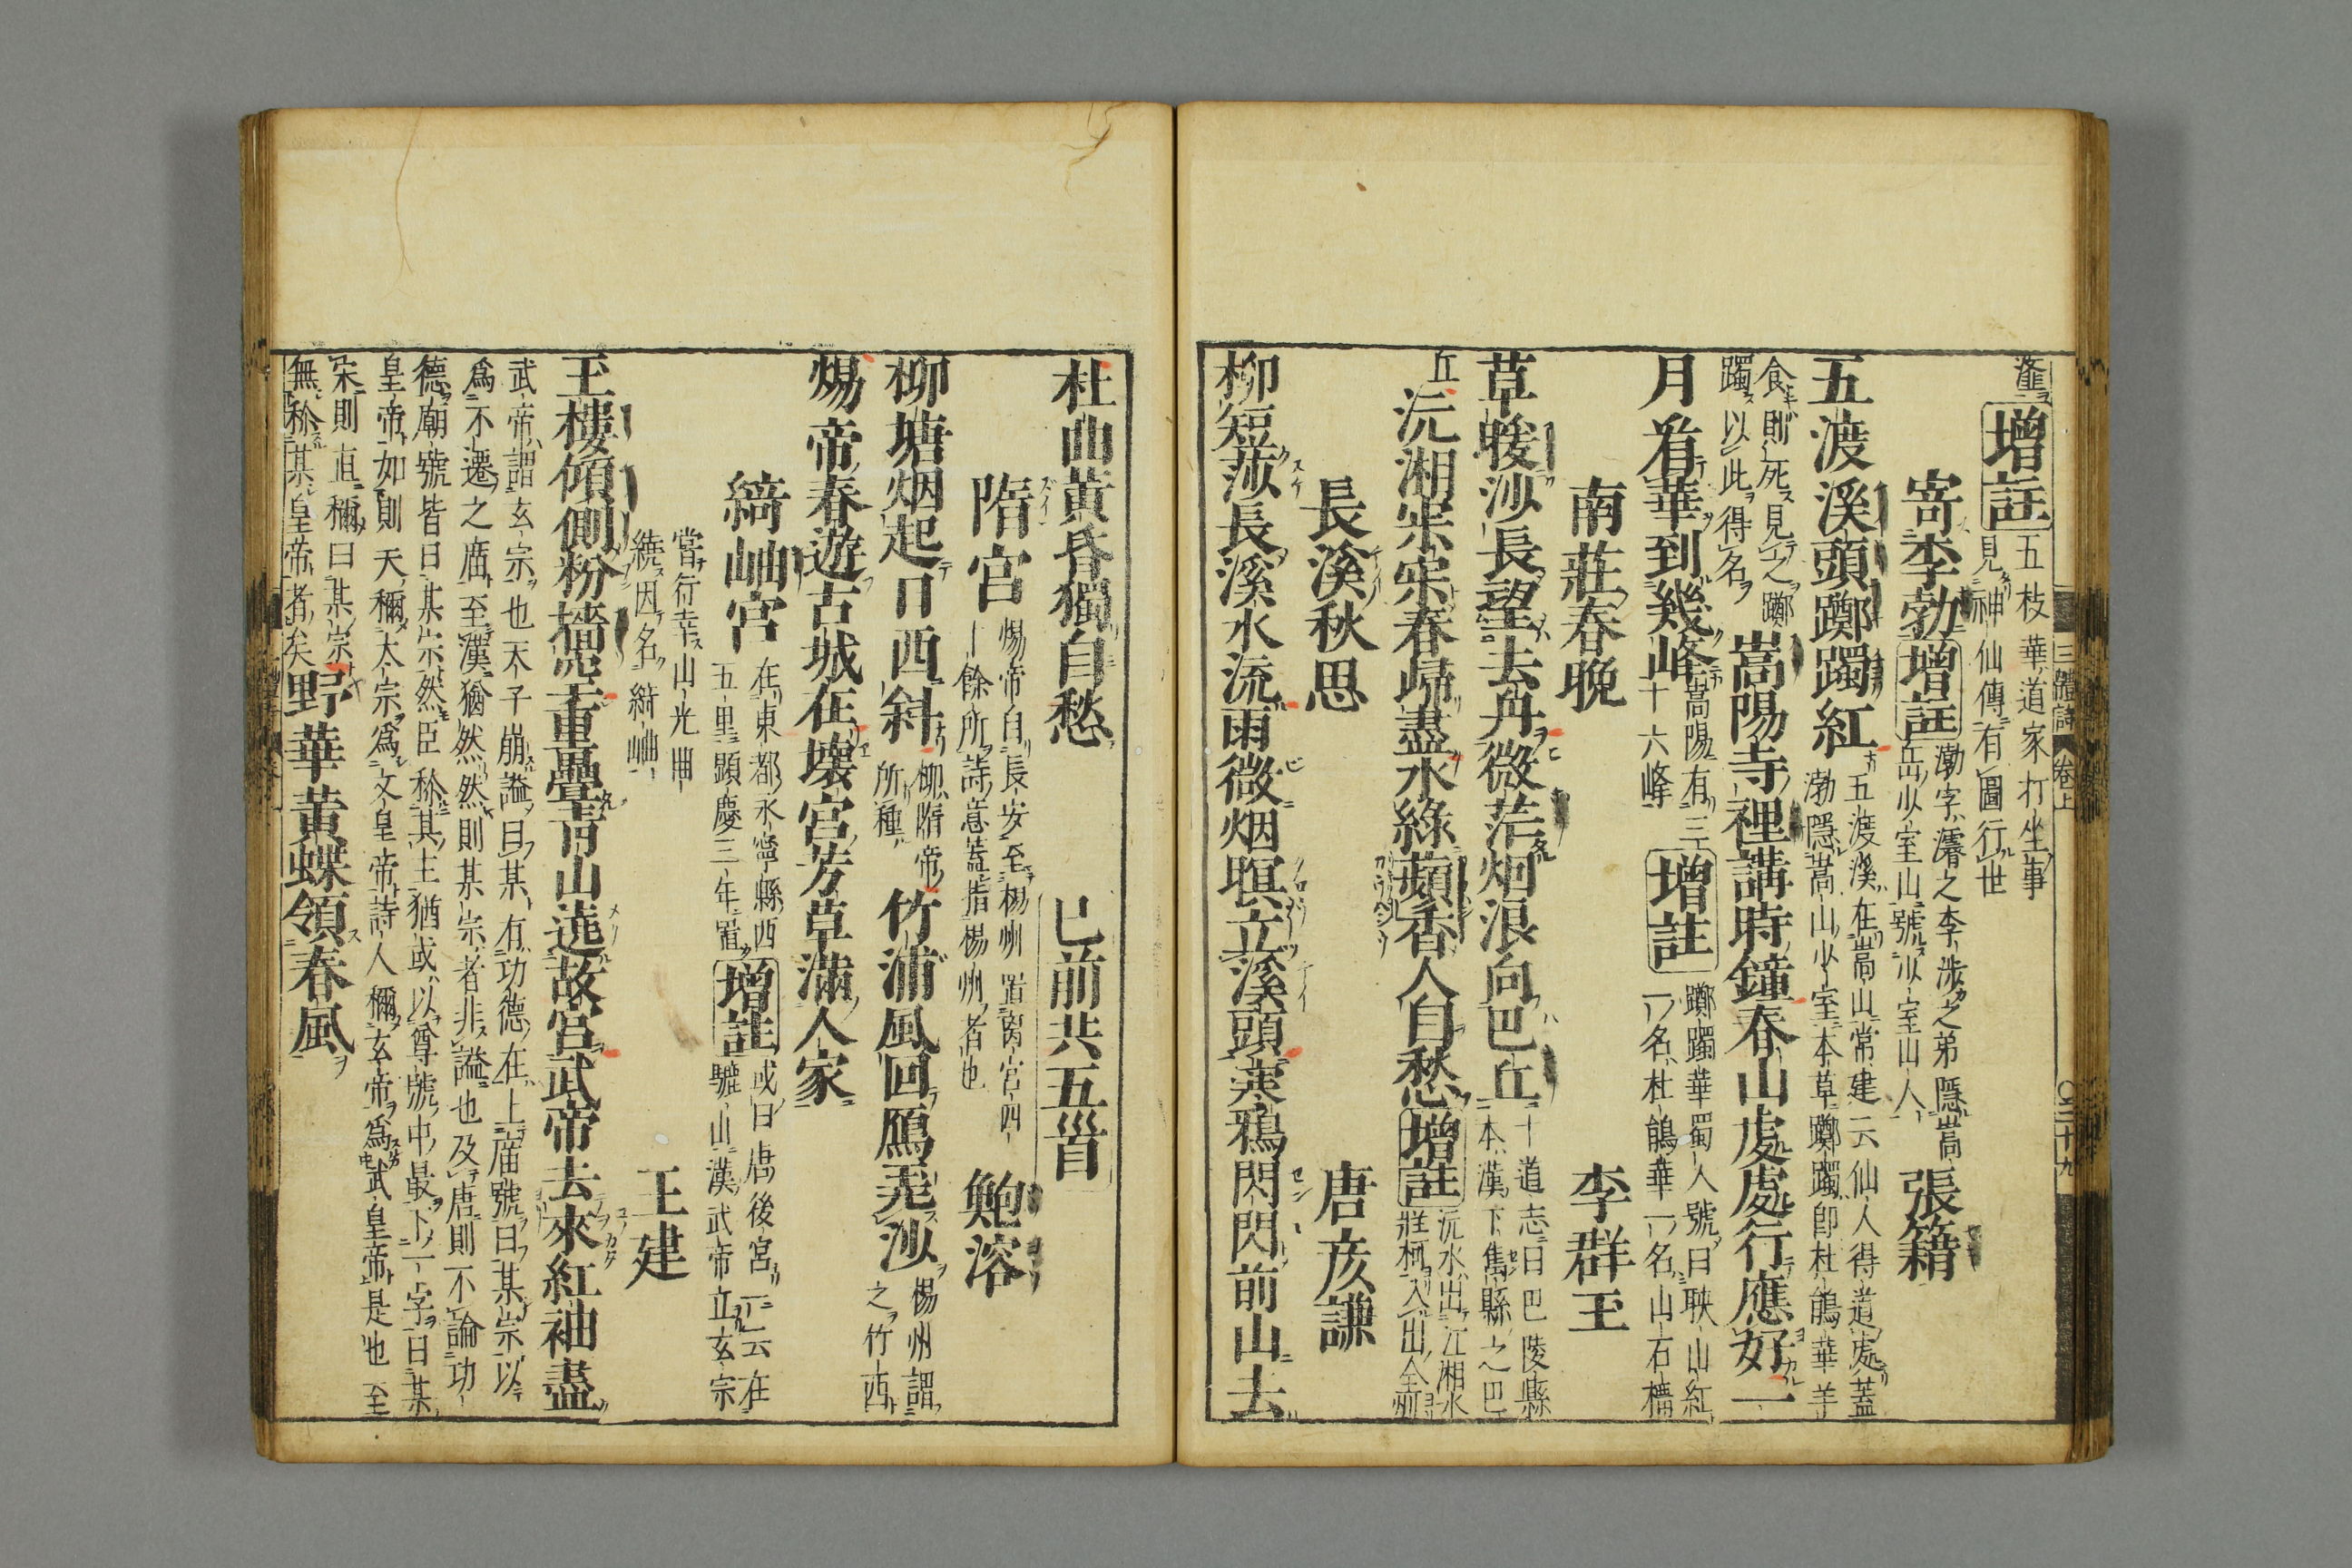 增註 五枝華道家打坐事
見神仙傳有圖行世
寄李勃 增註 渤字濬之李渉之弟隱嵩
岳少室山號少室山人 張籍
五渡溪頭躑躅紅 五渡溪在嵩山常建云仙人得道處蓋
渤隱嵩山少室本草躑躅即杜鵑華羊
食則死見之躑
躅以此得名 嵩陽寺裡講時鐘春山處處行應好一
月看華到幾峰 嵩陽有三
十六峰 增註 躑躅華蜀人號曰映山紅
一名杜鵑華一名山石榴
南莊春晚 李群玉
草暖沙長望去舟微茫烟浪向巴丘 十道志曰巴陵縣
本漢下雋縣之巴
丘 沅湘寂寂春歸盡水綠蘋香人自愁 增註 沅水出
牂柯入江湘水
出全州
長溪秋思 唐彦謙
柳短莎長溪水流雨微烟暝立溪頭寒鴉閃閃前山去
三體詩 卷上 〇三十九
杜曲黄昏獨自愁 已前共五首
隋宮 煬帝自長安至楊州置离宮四
十餘所詩意蓋指楊州者也 鮑溶
柳塘烟起日西斜 柳隋帝
所種 竹浦風回鴈弄沙 楊州謂
之竹西
煬帝春遊古城在壞宮芳草滿人家
綺岫宮 在東都永寧縣西
五里顯慶三年置 增註 或曰唐後宮一云在
驪山漢武帝立玄宗
當行幸山光岫
繞因名綺岫 王建
玉樓傾側粉墻空重疊青山遶故宮武帝去來紅袖盡
武帝謂玄宗也天子崩謚曰某有功德在上庿號曰某宗以
爲不遷之庿至漢猶然然則某宗者非謚也及唐則不論功
德廟號皆曰某宗然臣称其主猶或以尊號中最下一字曰某
皇帝如則天稱太宗爲文皇帝詩人稱玄帝爲武皇帝是也至
宋則直稱曰某宗
無称某皇帝者矣 野華黄蝶領春風